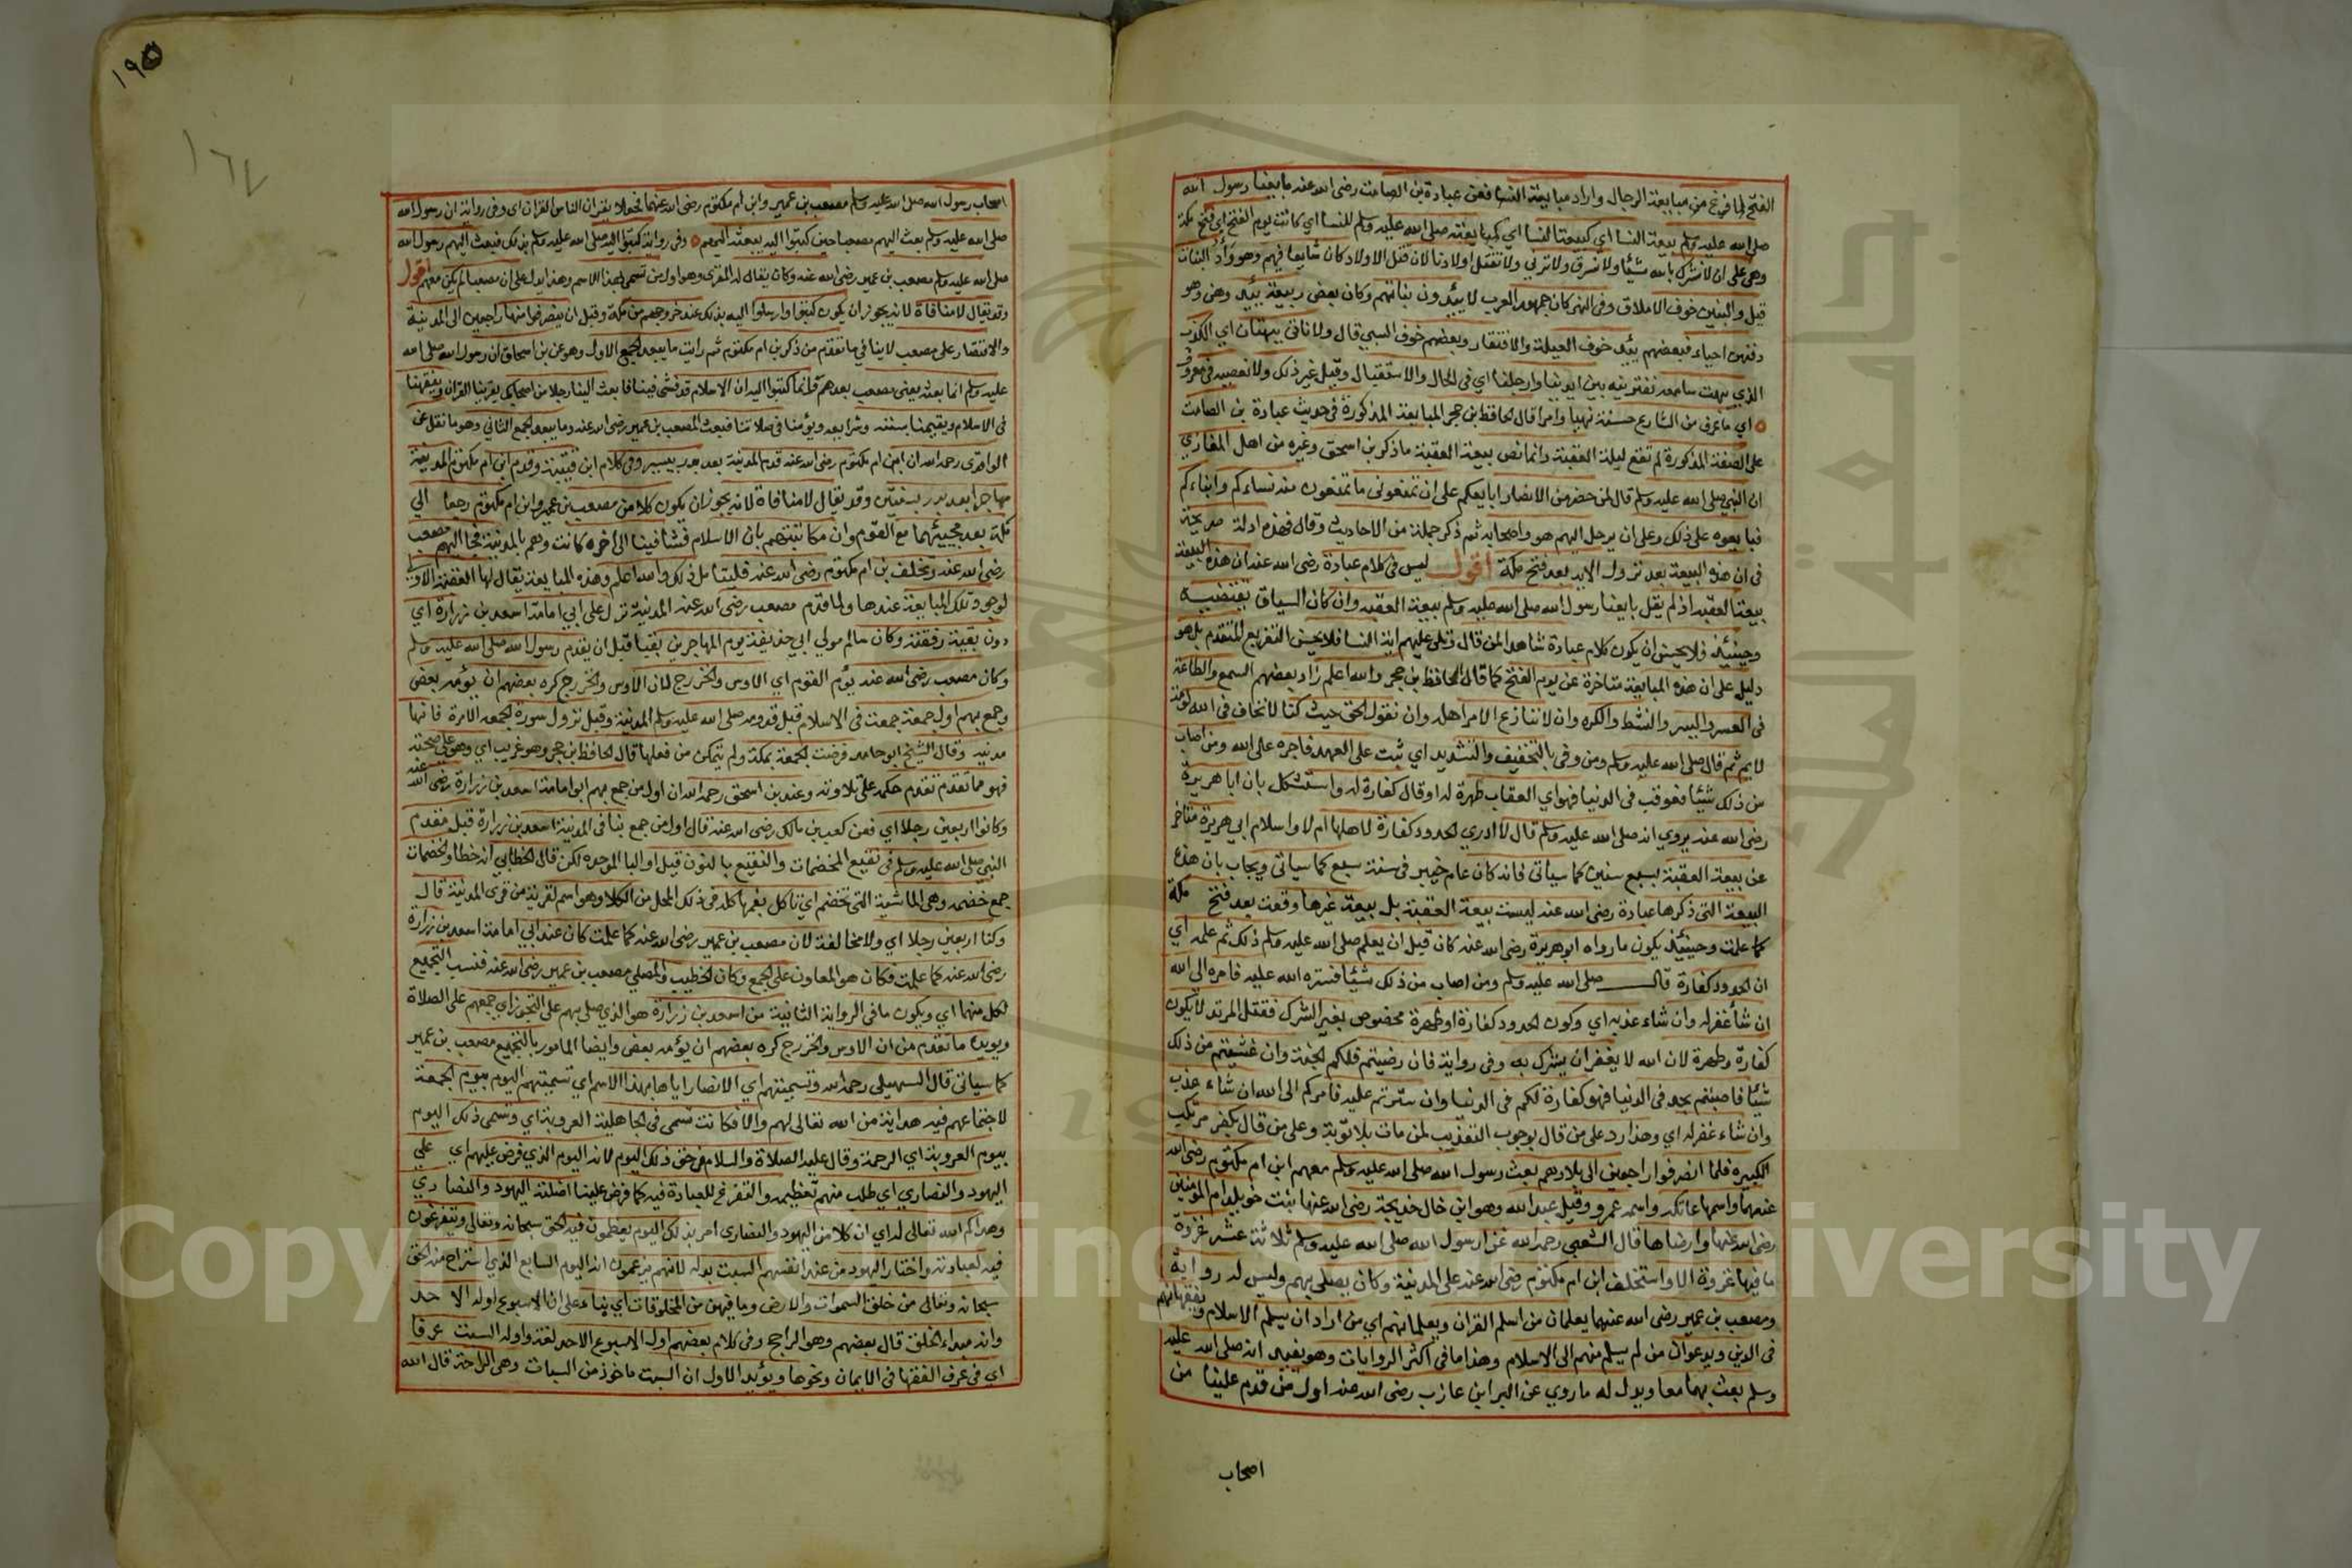 الفتح لما فرغ من مبايعة الرجال واراد مبايعة النسا فعن عبادة بن الصامت رضى الله عنه بايعنا رسول الله
صلى الله عليه وسلم بيعة النسا اى كبيعة النسا اى كمبايعته صلى الله عليه وسلم للنسا اى كانت يوم الفتح اى فتح مكة
وهى على ان لا نشرك بالله شيئا ولا نسرق ولا نزنى ولا نقتل اولادنا لان قتل الاولاد كان شايعا فيهم وهو وأد البنات
قيل والبنين خوف الاملاق وفى النهر كان جمهور العرب لا يئدون بناتهم وكان بعض ربيعة يئد وهن وهو
دفنهن احياء فبعضهم يئد خوف العيلة والافتقار وبعضهم خوف السبي قال ولا ناتى ببهتان اى الكذب
الذي يبهت سامعه نفتريه بين ايدينا وارجلنا اى فى الحال والاستقبال وقيل غير ذلك ولا نعصيه فى معروف
اى ما عرف من الشارع حسنة نهيا وامرا قال الحافظ بن حجر المبايعة المذكورة فى حديث عبادة بن الصامت
على الصفة المذكورة لم تقع ليلة العقبة وانما نص بيعة العقبة ما ذكر بن اسحق وغيره من اهل المغازي
ان النبي صلى الله عليه وسلم قال لمن حضر من الانصار ابايعكم على ان تمنعونى ما تمنعون منه نساءكم وابناءكم
فبايعوه على ذلك وعلى ان يرحل اليهم هو واصحابه ثم ذكر جملة من الاحاديث وقال فهذه ادلة صريحة
فى ان هذه البيعة بعد نزول الاية بعد فتح مكة اقول ليس فى كلام عبادة رضى الله عنه ان هذه البيعة
بيعة العقبة اذ لم يقل بايعنا رسول الله صلى الله عليه وسلم بيعة العقبة وان كان السياق يقتضيه
وحينئذ فلا يحسن ان يكون كلام عبادة شاهدا لمن قال وتلى عليهم اية النسا فلا يحسن التفريع المتقدم بل هو
دليل على ان هذه المبايعة متاخرة عن يوم الفتح كما قال الحافظ بن حجر والله اعلم زاد بعضهم السمع والطاعة
فى العسر واليسر والنشط والكره وان لا ننازع الامر اهله وان نقول الحق حيث كنا لا نخاف فى الله لومة
لايم ثم قال صلى الله عليه وسلم ومن وفى بالتخفيف والتشديد اى ثبت على العهد فاجره على الله ومن اصاب
من ذلك شيئا فعوقب فى الدنيا فهو اى العقاب طهرة له او قال كفارة له واستشكل بان ابا هريرة
رضى الله عنه يروي انه صلى الله عليه وسلم قال لا ادري الحدود كفارة لاهلها ام لا واسلام ابي هريرة متاخر
عن بيعة العقبة بسبع سنين كما سياتى فانه كان عام خيبر فى سنة سبع كما سياتى ويجاب بان هذه
البيعة التى ذكرها عبادة رضى الله عنه ليست بيعة العقبة بل بيعة غيرها وقعت بعد فتح مكة
كما علمت وحينئذ يكون ما رواه ابو هريرة رضى الله عنه كان قبل ان يعلم صلى الله عليه وسلم ذلك ثم علمه اى
ان الحدود كفارة قال صلى الله عليه وسلم ومن اصاب من ذلك شيئا فستره الله عليه فامره الى الله
ان شأ غفر له وان شاء عذبه اى وكون الحدود كفارة او طهرة مخصوص بغير الشرك فقتل المرتد لا يكون
كفارة وطهرة لان الله لا يغفر ان يشرك به وفى رواية فان رضيتم فلكم الجنة وان غشيتم من ذلك
شيئا فاصبتم بحد فى الدنيا فهو كفارة لكم فى الدنيا وان سترتم عليه فامركم الى الله ان شاء عذب
وان شاء غفر له اى وهذا رد على من قال بوجوب التعذيب لمن مات بلا توبة وعلى من قال بكفر مرتكب
الكبيره فلما انصرفوا راجعين الى بلادهم بعث رسول الله صلى الله عليه وسلم معهم ابن ام مكتوم رضى الله
عنهما واسمها عاتكة واسمه عمرو وقيل عبد الله وهو ابن خال خديجة رضى الله عنها بنت خويلد ام المومنين
رضى الله عنها وارضاها قال الشعبى رحمه الله غزا رسول الله صلى الله عليه وسلم ثلاثة عشر غزوة
ما فيها غزوة الا واستخلف ابن ام مكتوم رضى الله عنه على المدينة وكان يصلى بهم وليس له رواية
ومصعب بن عمير رضى الله عنهما يعلمان من اسلم القران ويعلمانهم اى من اراد ان يسلم الاسلام ويفقهانهم
فى الدين ويدعوان من لم يسلم منهم الى الاسلام وهذا ما فى اكثر الروايات وهو يفيد انه صلى الله عليه
وسلم بعث بهما معا ويدل له ما روي عن البرا بن عازب رضى الله عنه اول من قدم علينا من
اصحاب
١٩٥
١٦٧
اصحاب رسول الله صلى الله عليه وسلم مصعب بن عمير وابن ام مكتوم رضى الله عنهما فجعلا يقران الناس القران اى وفى رواية ان رسول الله
صلى الله عليه وسلم بعث اليهم مصعبا حين كتبوا اليه يبعثه اليهم وفى رواية كتبوا اليه صلى الله عليه وسلم بذلك فبعث اليهم رسول الله
صلى الله عليه وسلم مصعب بن عمير رضى الله عنه وكان يقال له المقرى وهو اول من تسمى بهذا الاسم وهذا يدل على ان مصعبا لم يكن معهم اقول
وقد يقال لا منافاة لانه يجوز ان يكون كتبوا وارسلوا اليه بذلك عند خروجهم من مكة وقبل ان ينصرفوا منها راجعين الى المدينة
والاقتصار على مصعب لا ينافي ما تقدم من ذكر بن ام مكتوم ثم رايت ما يبعد الجمع الاول وهو عن بن اسحاق ان رسول الله صلى الله
عليه وسلم انما بعث يعنى مصعب بعدهم وانما كتبوا اليه ان الاسلام قد فشى فينا فابعث الينا رجلا من اصحابك يقرينا القران ويفقهنا
فى الاسلام ويقيمنا بسنته وشرايعه ويؤمنا فى صلاتنا فبعث المصعب بن عمير رضى الله عنه وما يبعد الجمع الثانى وهو ما نقل عن
الواقدى رحمه الله ان ابن ام مكتوم رضى الله عنه قدم المدينة بعد بدر بيسير وفى كلام ابن قتيبة وقدم ابن ام مكتوم المدينة
مهاجرا بعد بدر بسنتين وقد يقال لا منافاة لانه يجوز ان يكون كلا من مصعب بن عمير وابن ام مكتوم رجعا الى
مكة بعد مجيئهما مع القوم وان مكاتبتهم بان الاسلام فشا فينا الى اخره كانت وهم بالمدينة فجا اليهم مصعب
رضى الله عنه وتخلف بن ام مكتوم رضى الله عنه فليتامل ذلك والله اعلم وهذه المبايعة يقال لها العقبة الاولى
لوجود تلك المبايعة عندها ولما قدم مصعب رضى الله عنه المدينة نزل على ابي امامة اسعد بن زرارة اى
دون بقية رفقته وكان سالم مولى ابي حذيفة يوم المهاجرين بقبا قبل ان يقدم رسول الله صلى الله عليه وسلم
وكان مصعب رضى الله عنه يؤم القوم اى الاوس والخزرج لان الاوس والخزرج كره بعضهم ان يؤمه بعض
وجمع بهم اول جمعة جمعت فى الاسلام قبل قدومه صلى الله عليه وسلم المدينة وقبل نزول سورة الجمعة الامرة فانها
مدنية وقال الشيخ ابو حامد فرضت الجمعة بمكة ولم يتمكن من فعلها قال الحافظ بن حجر وهو غريب اى وهو على صحته
فهو مما تقدم تقدم حكمه على تلاوته وعند بن اسحق رحمه الله ان اول من جمع بهم ابو امامة اسعد بن زرارة رضى الله عنه
وكانوا اربعين رجلا اى فعن كعب بن مالك رضى الله عنه قال اول من جمع بنا فى المدينة اسعد بن زرارة قبل مقدم
النبي صلى الله عليه وسلم فى نقيع الخضمات والنقيع بالنون قيل او البا الموحده لكن قال الخطابي انه خطا والخضمات
جمع خضمه وهى الماشية التى تخضم اى تاكل بفمها كله فى ذلك المحل من الكلا وهو اسم لقرية من قرى المدينة قال
وكنا اربعين رجلا اى ولا مخالفة لان مصعب بن عمير رضى الله عنه كما علمت كان عند ابي امامة اسعد بن زرارة
رضى الله عنه كما علمت فكان هو المعاون على الجمع وكان الخطيب والمصلى مصعب بن عمير رضى الله عنه فنسب التجميع
لكل منهما اى ويكون ما فى الرواية الثانية من اسعد بن زرارة هو الذي صلى بهم على التجوز اى جمعهم على الصلاة
ويويده ما تقدم من ان الاوس والخزرج كره بعضهم ان يؤمه بعض وايضا المامور بالتجميع مصعب بن عمير
كما سياتى قال السهيلى رحمه الله وتسميتهم اى الانصار اياها بهذا الاسم اى تسميتهم اليوم بيوم الجمعة
لاجتماعهم فيه هداية من الله تعالى لهم والا فكانت تسمى فى الجاهلية العروبة اى وتسمى ذلك اليوم
بيوم العروبة اى الرحمة وقال عليه الصلاة والسلام فى حق ذلك اليوم انه اليوم الذي فرض عليهم اى على
اليهود والنصاري اى طلب منهم تعظيمه والتفرغ للعبادة فيه كما فرض علينا اضلته اليهود والنصاري
وهداكم الله تعالى له اى ان كلا من اليهود والنصارى امر بذلك اليوم يعظمون فيه الحق سبحانه وتعالى ويتفرغون
فيه لعبادته واختار اليهود من عند انفسهم السبت بدله لانهم يزعمون انه اليوم السابع الذي استراح منه الحق
سبحانه وتعالى من خلق السموات والارض وما فيهن من المخلوقات اى بناء على ان الاسبوع اوله الاحد
وانه مبداء الخلق قال بعضهم وهو الراجح وفى كلام بعضهم اول الاسبوع الاحد لغة واوله السبت عرفا
اى فى عرف الفقها فى الايمان ونحوها ويؤيد الاول ان السبت ماخوذ من السبات وهى الراحة قال الله
Copyright © King Saud University
جامعة الملك سعود